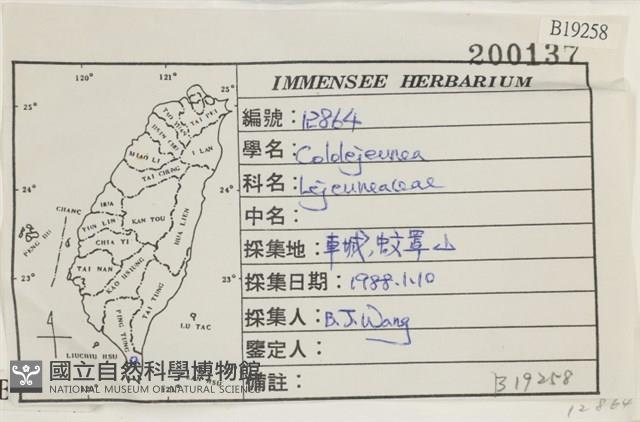 B19258
200137
IMMENSEE HERBARIUM
編號：12864
學名：Cololejeunea
科名：Lejeuneaceae
中名：
採集地：車城,蚊罩山
採集日期：1988.1.10
採集人：B.J.Wang
鑒定人：
備註：
B19258
12864
120°
121°
25°
25°
TAO YUAN
TAI PEI
HSIN CHU
I LAN
MIAO LI
TAI CHUNG
24°
24°
CHANG HUA
NAN TOU
HUA LIEN
YUN LIN
PENG HU
CHIA YI
TAI NAN
KAO HSIUNG
23°
23°
TAI TUNG
PING TUNG
LU TAO
LIUCHIU HSU
120°
121°
國立自然科學博物館
NATIONAL MUSEUM OF NATURAL SCIENCE